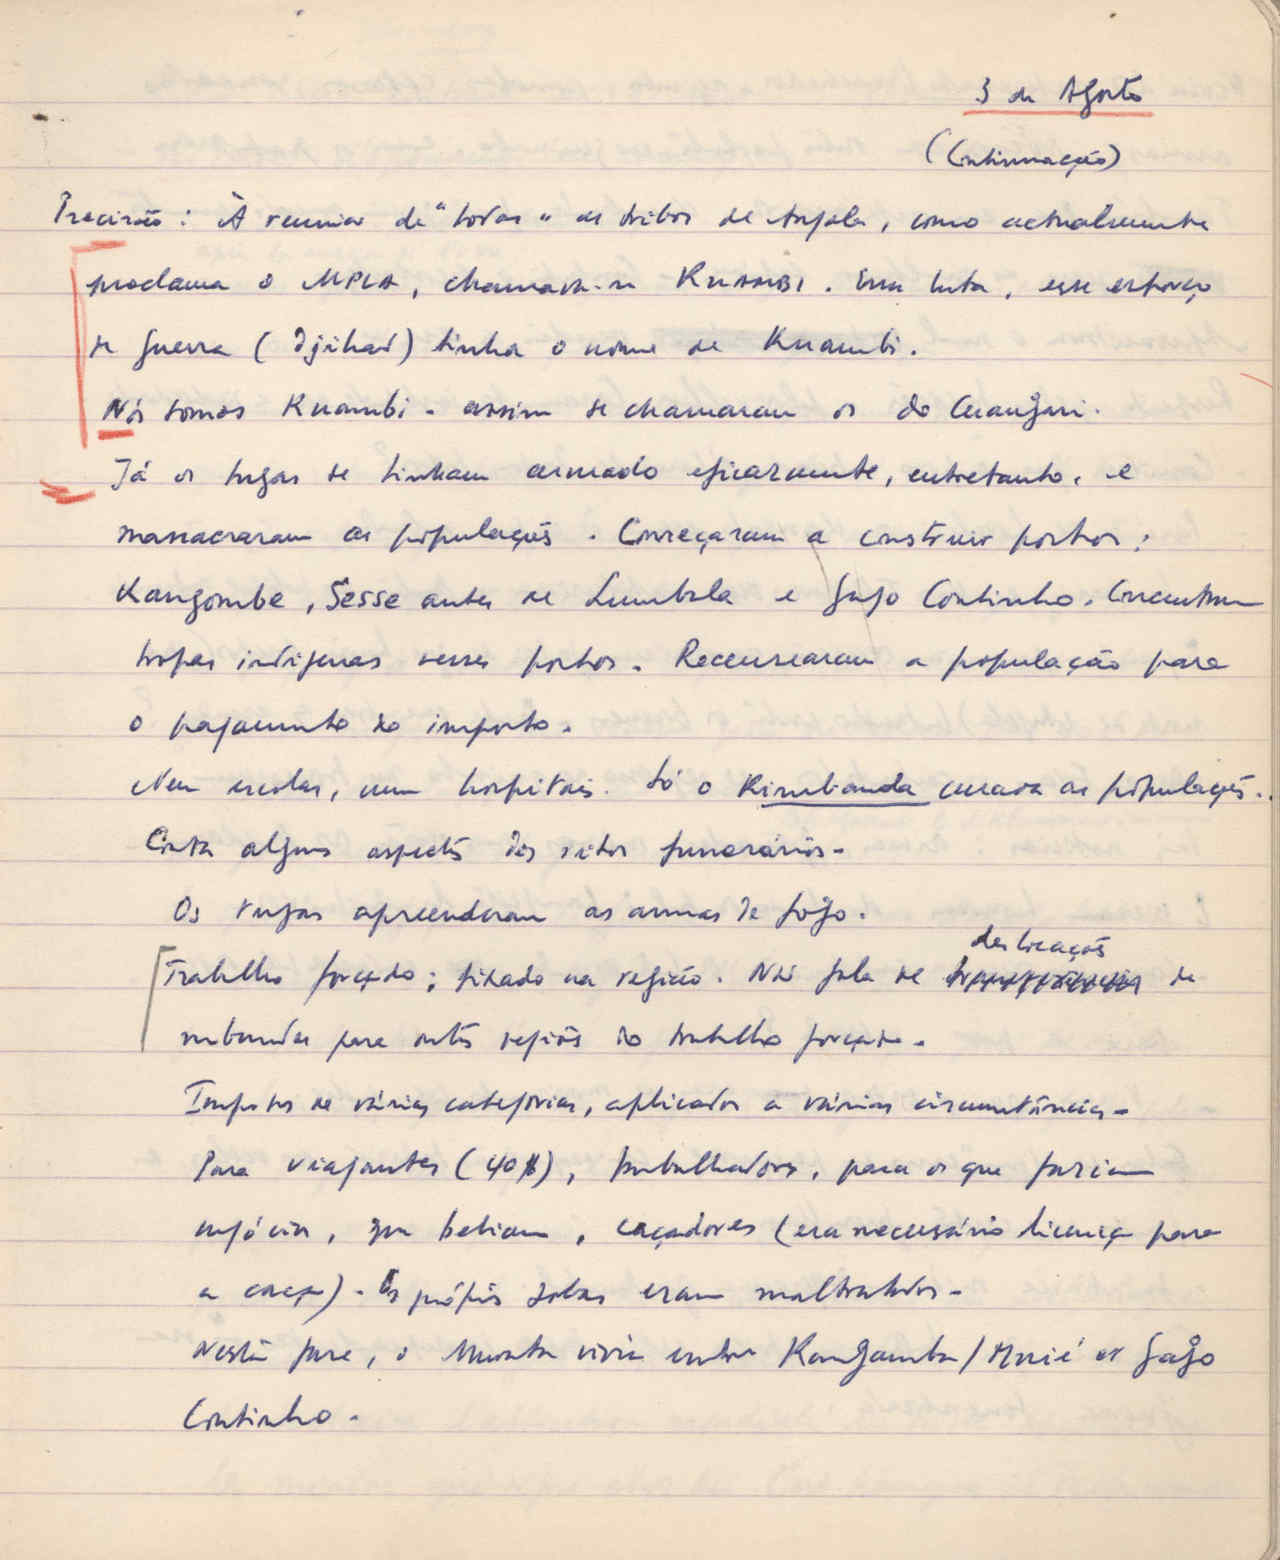 3 de Agosto
(Continuação)
Precisão: À reunião de "todas" as tribos de Angola, como actualmente
proclama o MPLA, chamava-se KUAMBI. Essa luta, esse esforço
de guerra (Djihad) tinha o nome de Kuambi.
Nós somos Kuambi - assim se chamaram os do Cuangari.
Já os tugas se tinham armado eficazmente, entretanto, e
massacraram as populações. Começaram a construir postos:
Kangombe, Sesse antes de Lumbala e Gago Coutinho. Concentram
tropas indígenas nesses postos. Recensearam a população para
o pagamento do imposto.
Nem escolas, nem hospitais. Só o Kimbanda curava as populações.
Conta alguns aspectos dos ritos funerários.
Os tugas apreenderam as armas de fogo.
deslocações
Trabalho forçado; fixado na região. Não fala de de
mbundas para outras regiões do trabalho forçado.
Impostos de várias categorias, aplicados a várias circunstâncias.
Para viajantes (40$), trabalhadores, para os que faziam
negócios, que bebiam, caçadores (era necessário licença para
a caça). Os próprios sobas eram maltratados.
Nesta fase, o Muvata vivia entre Kangamba/Muié e Gago
Coutinho.